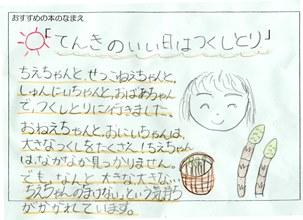 おすすめの本のなまえ
「てんきのいい日はつくしとり」
ちえちゃんと、せっこねえちゃんと、
しゅんにいちゃんと、おばあちゃん
で、つくしとりに行きました。
おねえちゃんと、おにいちゃんは、
大きなつくしをたくさん!ちえちゃん
は、なかなか見っかりません。
でも、なんと大きな大きな、
ちえちゃんの「まけない」という気持ち
がかかれています。